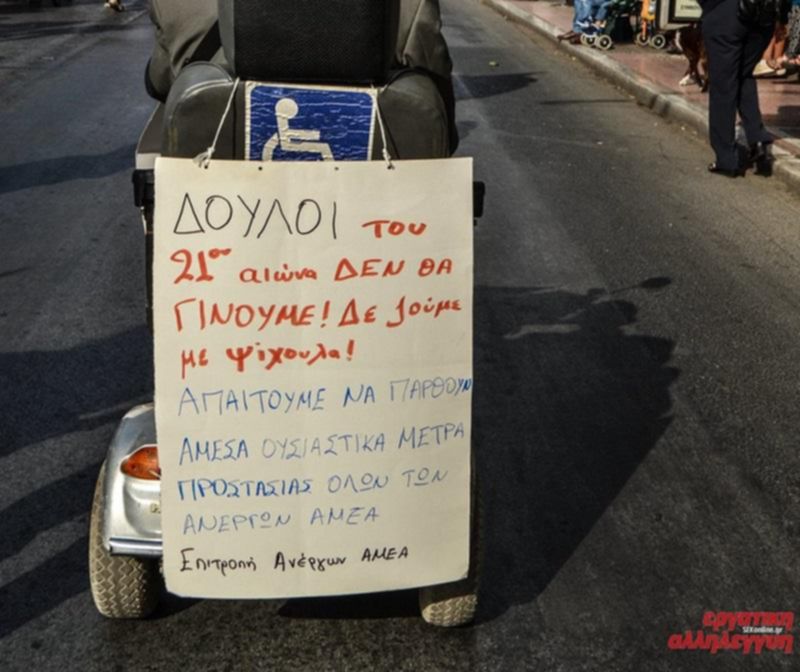 ΔΟΥΛΟΙ του
21ου αιώνα ΔΕΝ ΘΑ
ΓΙΝΟΥΜΕ! Δε ζούμε
με ψίχουλα!
ΑΠΑΙΤΟΥΜΕ ΝΑ ΠΑΡΘΟΥΝ
ΑΜΕΣΑ ΟΥΣΙΑΣΤΙΚΑ ΜΕΤΡΑ
ΠΡΟΣΤΑΣΙΑΣ ΟΛΩΝ ΤΩΝ
ΑΝΕΡΓΩΝ ΑΜΕΑ
Επιτροπή Ανέργων ΑΜΕΑ
εργατικη
SEKonline.gr
αλληλεγγυη